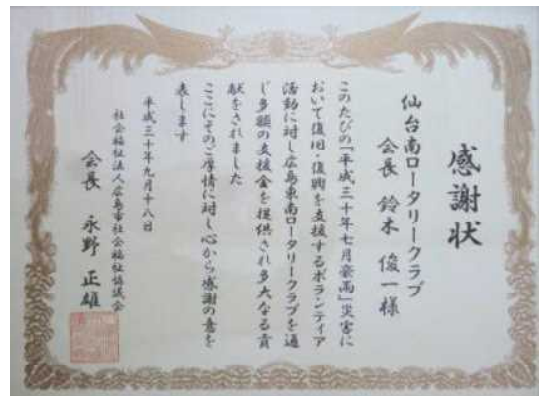 感謝状
仙台南ロータリークラブ
会長 鈴木 俊一様
このたびの「平成三十年七月豪雨」災害に
おいて復旧・復興を支援するボランティア
活動に対し広島東南ロータリークラブを通
じ多額の支援金を提供され多大なる貢
献をされました
ここにそのご厚情に対し心から感謝の意を
表します
平成三十年九月十八日
社会福祉法人広島市社会福祉協議会
会長 永野 正雄